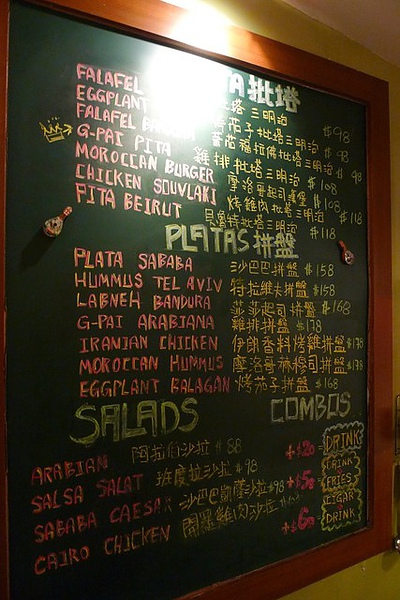 A 批塔
FALAFEL 批塔三明治 $98
EGGPLANT 茄子批塔三明治 $98
FALAFEL 番茄福拉佛批塔三明治 $98
G-PAI PITA 雞排批塔三明治 $108
MOROCCAN BURGER 摩洛哥起司漢堡 $108
CHICKEN SOUVLAKI 烤雞肉批塔三明治 $118
PITA BEIRUT 貝魯特批塔三明治 $118
PLATAS 拼盤
PLATA SABABA 沙巴巴拼盤 $158
HUMMUS TEL AVIV 特拉維夫拼盤 $158
LABNEH BANDURA 起司拼盤 $168
G-PAI ARABIANA 雞排拼盤 $178
IRANIAN CHICKEN 伊朗香料烤雞拼盤 $178
MOROCCAN HUMMUS 摩洛哥赫穆司拼盤 $178
EGGPLANT BALAGAN 烤茄子拼盤 $168
SALADS COMBOS
ARABIAN 阿拉伯沙拉 $88
SALSA SALAT 班度拉沙拉 $98
SABABA CAESAR 沙巴巴凱薩沙拉 $98
CAIRO CHICKEN 開羅雞肉沙拉
+$20= DRINK
DRINK
FRIES
DRINK